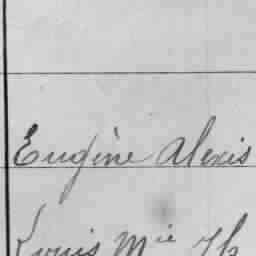 Eugène Alexis
Louis Mie Th